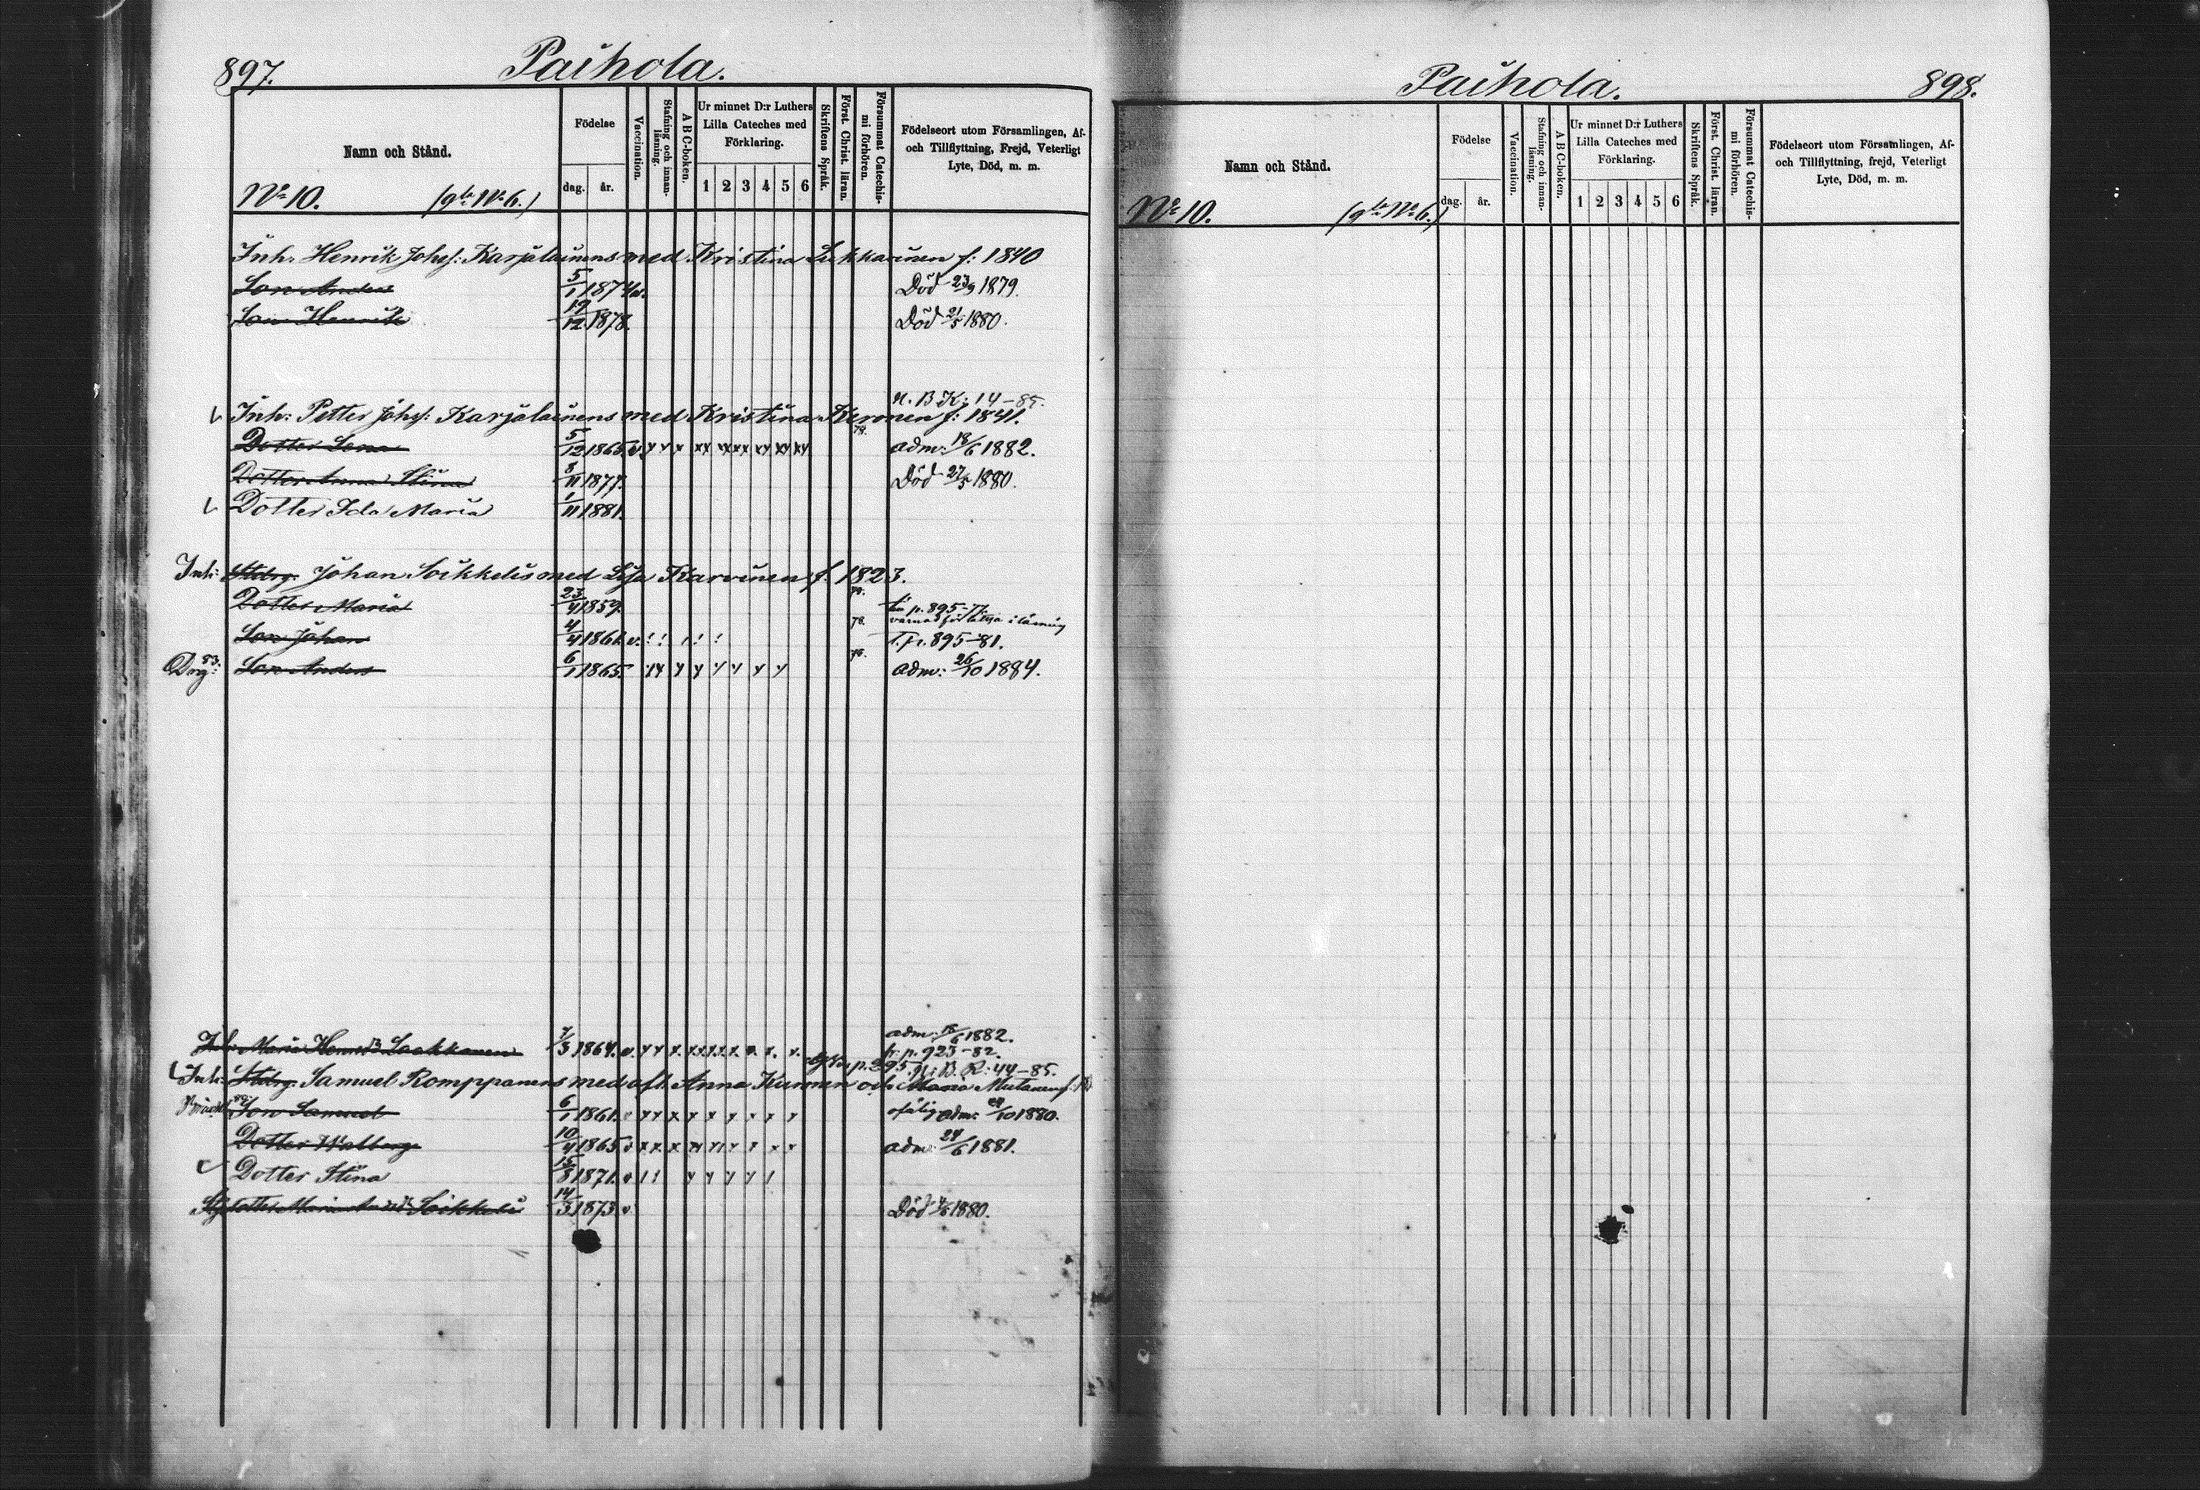 897. Paihola.
Namn och Stånd.
Födelse
dag. år.
Vaccination.
Stafning och innanläsning.
A B C-boken.
Ur minnet D:r Luthers Lilla Cateches med Förklaring.
1 2 3 4 5 6
Skriftens Språk.
Först. Christ. läran.
Försummat Catechismi förhören.
Födelseort utom Församlingen, Af- och Tillflyttning, Frejd, Veterligt Lyte, Död, m. m.
No 10. (gla No 6.)
Inh. Henrik Johsf: Karjalainens med Kristina Lukkarinen f: 1840
Son Anders 5/1 1874 v. Död 23/9 1879.
Son Henrik 19/12 1878. Död 21/5 1880.
n. B. K: 14-85.
Inh: Petter Johsf: Karjalainens med Kristina Keronen f: 1841.
Dotter Lena 5/12 1865 v. adm: 18/6 1882.
Dotter Anna Stina 8/11 1877. Död 27/5 1880.
Dotter Ida Maria 1/11 1881.
Inh: Johan Soikkelis med Lisa Karvinen f. 1823.
Dotter Maria 23/4 1859. p. 895-77.
Son Johan 4/4 1861. v. T. p. 895-81.
Drg: 83. Son Anders 6/1 1865. adm: 26/10 1884.
adm: 18/6 1882.
Maria Laakkonen 7/3 1864. v. fr. p. 923-82.
p. 895. n: B. K: 44-85.
Inh: Samuel Romppanens med afl. Anna Kuronen och Maria Mutanen
Son Samuel 6/1 1861. adm: 1880.
Dotter Walborg 10/4 1865 v adm: 24/6 1881.
Dotter Stina 15/8 1871. v
Maria Soikkeli 14/3 1873 v. Död 1880.
Paihola. 898.
Namn och Stånd.
Födelse
dag. år.
Vaccination.
Stafning och innanläsning.
A B C-boken.
Ur minnet D:r Luthers Lilla Cateches med Förklaring.
1 2 3 4 5 6
Skriftens Språk.
Först. Christ. läran.
Försummat Catechismi förhören.
Födelseort utom Församlingen, Af- och Tillflyttning, frejd, Veterligt Lyte, Död, m. m.
No 10. (gla No 6.)